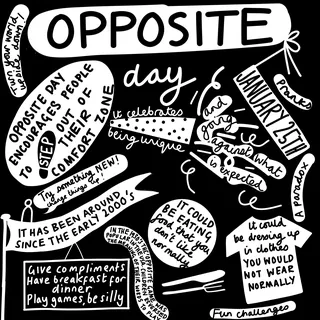 Turn your world,
upside down
OPPOSITE
day
OPPOSITE DAY
ENCOURAGES PEOPLE
TO STEP OUT OF
THEIR
COMFORT ZONE
it celebrates
being unique
and
going
against what
is expected
JANUARY 25TH
Pranks
A paradox
Try something NEW!
things up!
IT HAS BEEN AROUND
SINCE THE EARLY 2000's
IT COULD
BE EATING
food that you
don't like
normally
it could
be dressing up
in clothes
YOU WOULD
NOT WEAR
NORMALLY
Give compliments
Have breakfast for
dinner
Play games, be silly
IN THE
Fun challenges